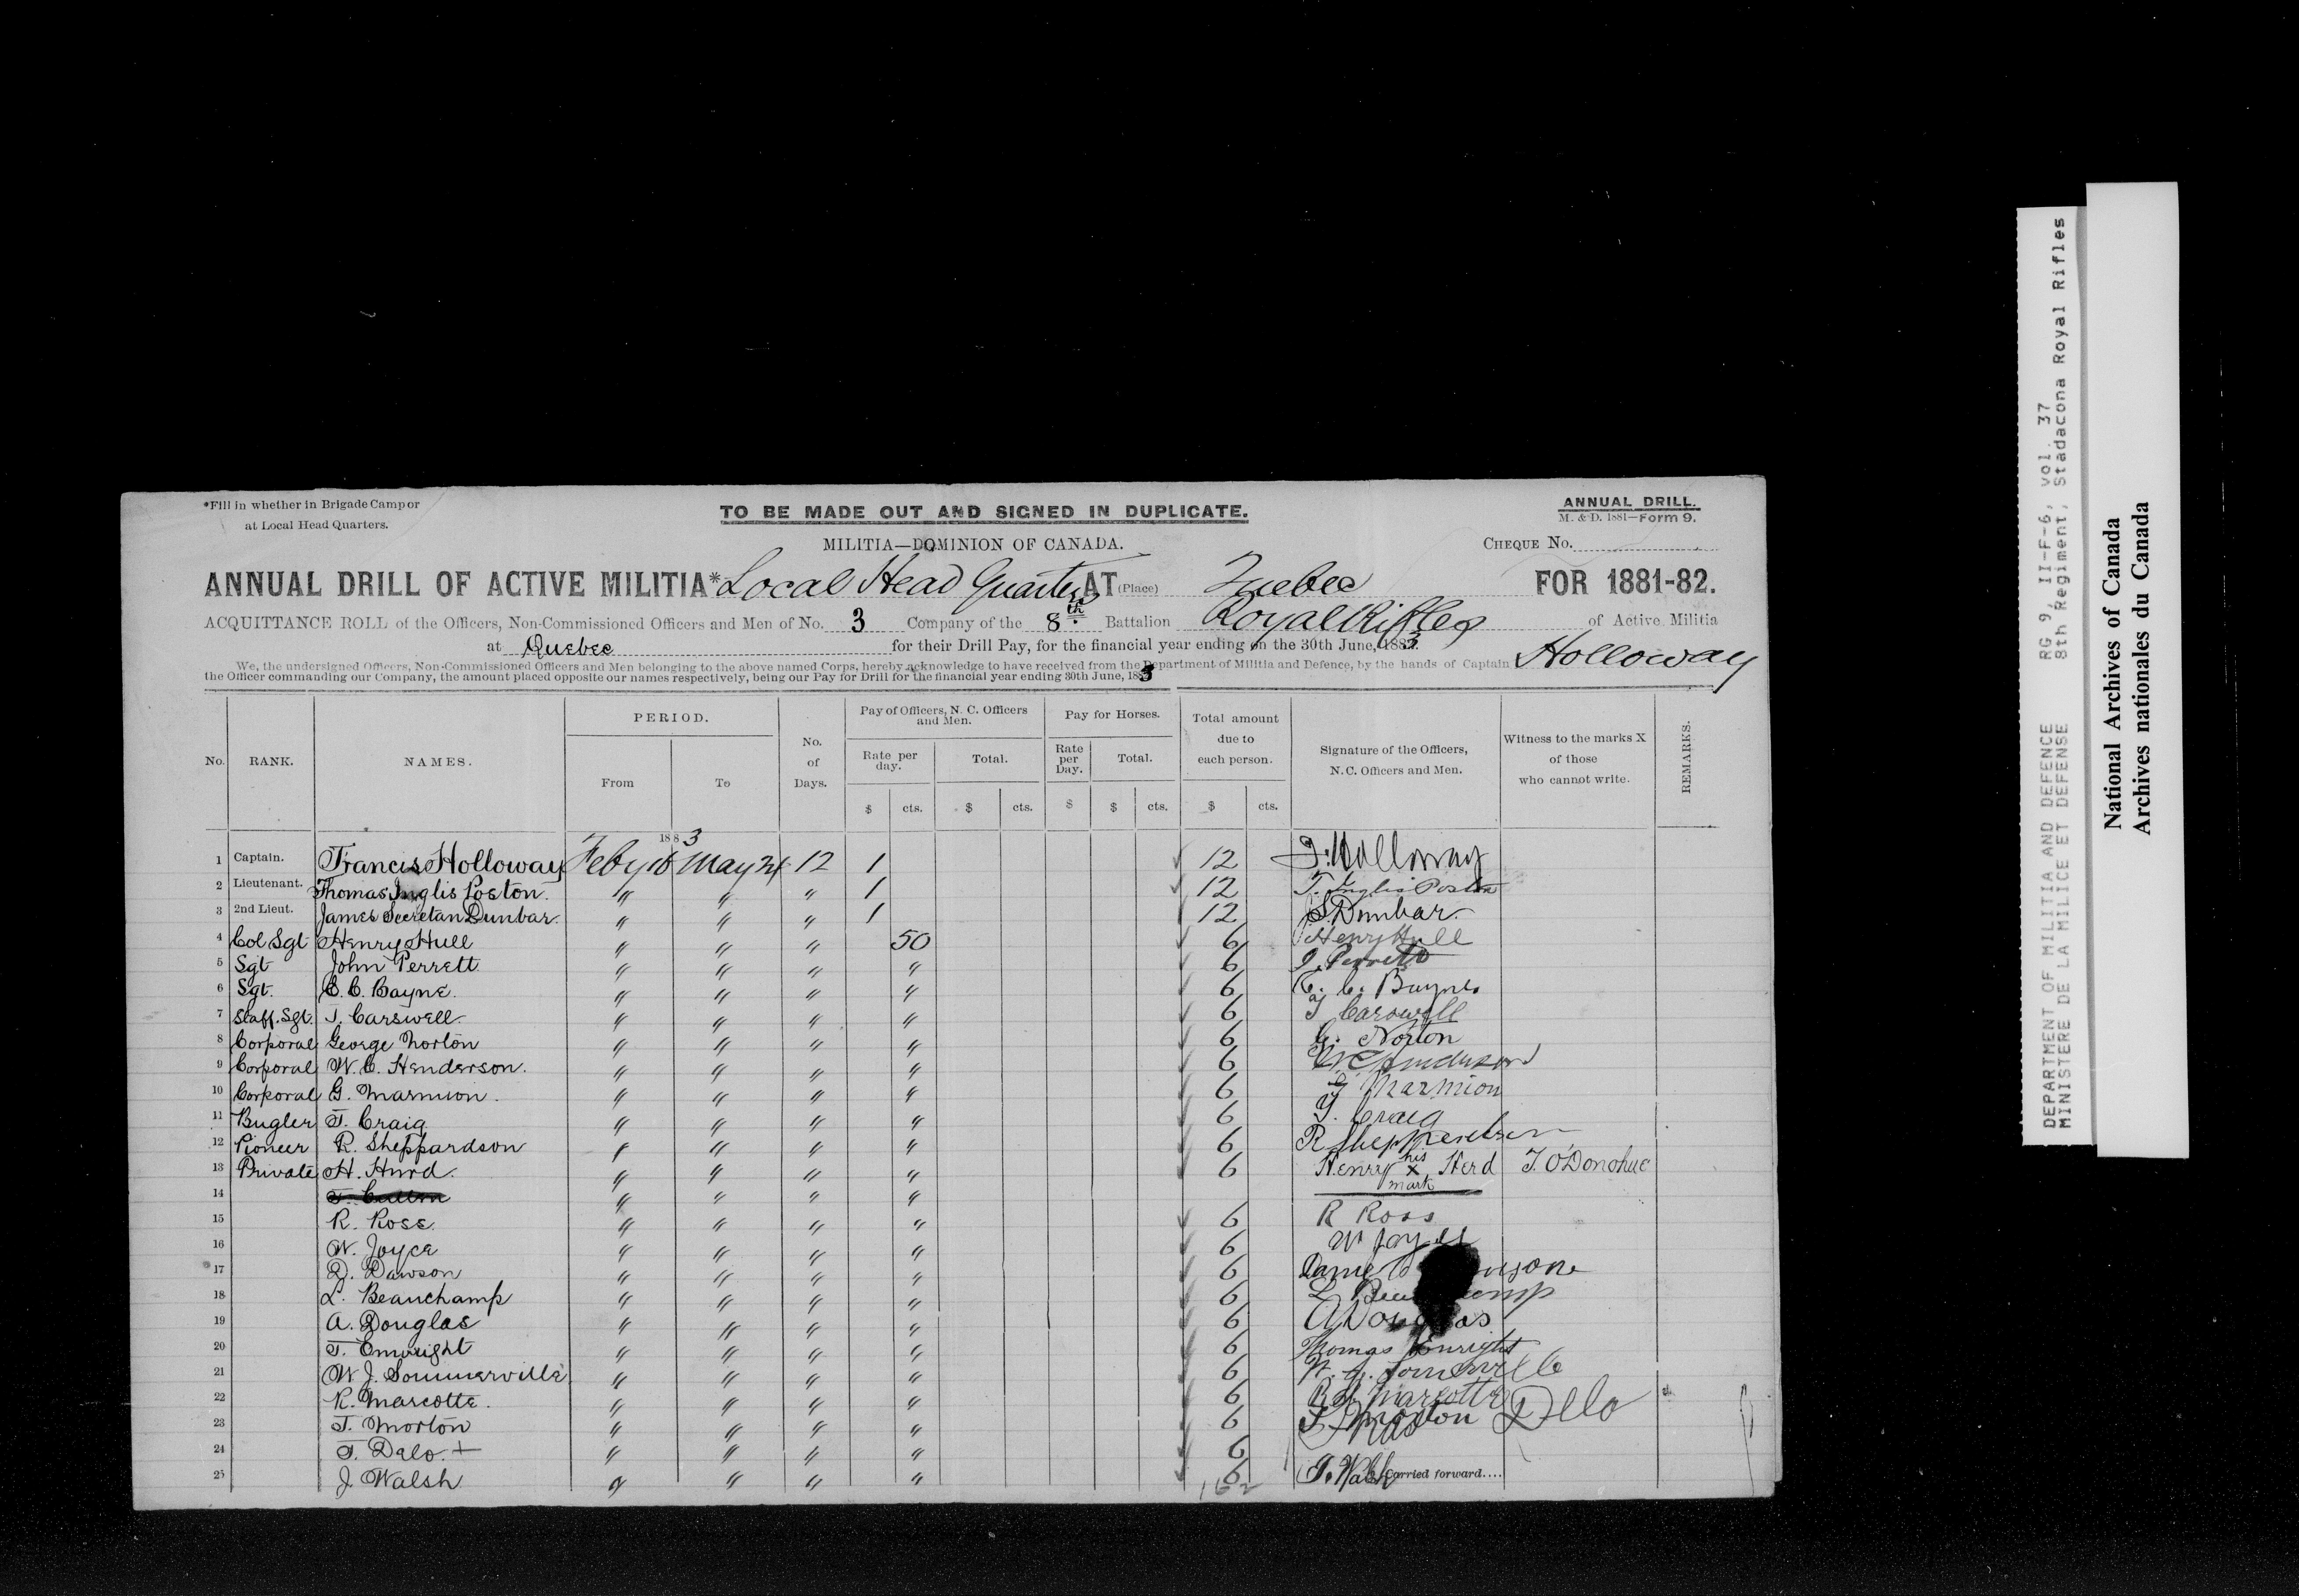 *Fill in whether in Brigade Camp or
at Local Head Quarters.
TO BE MADE OUT AND SIGNED IN DUPLICATE.
ANNUAL DRILL.
M. & D. 1881—Form 9.
MILITIA—DOMINION OF CANADA.
CHEQUE No.
ANNUAL DRILL OF ACTIVE MILITIA* Local Head Quarters AT (Place) Quebec FOR 1881-82.
ACQUITTANCE ROLL of the Officers, Non-Commissioned Officers and Men of No. 3 Company of the 8th Battalion Royal Rifles of Active Militia
at Quebec for their Drill Pay, for the financial year ending on the 30th June, 1883.
We, the undersigned Officers, Non-Commissioned Officers and Men belonging to the above named Corps, hereby acknowledge to have received from the Department of Militia and Defence, by the hands of Captain Holloway
the Officer commanding our Company, the amount placed opposite our names respectively, being our Pay for Drill for the financial year ending 30th June, 1883
No. RANK. NAMES. PERIOD. From To No. of Days. Pay of Officers, N. C. Officers and Men. Rate per day. $ cts. Total. $ cts. Pay for Horses. Rate per Day. $ Total. $ cts. Total amount due to each person. $ cts. Signature of the Officers, N. C. Officers and Men. Witness to the marks X of those who cannot write. REMARKS.
1883
1 Captain. Francis Holloway Feby May 12 1 12 F. Holloway
2 Lieutenant. Thomas Inglis Poston. " " " 1 12 T. Inglis Poston
3 2nd Lieut. James Secretan Dunbar. " " " 1 12 J.S. Dunbar
4 Col Sgt Henry Hull " " " 50 6 Henry Hull
5 Sgt John Perrett " " " " 6 J. Perrett
6 Sgt. C. C. Bayne. " " " " 6 C. C. Bayne
7 Staff. Sgt. J. Carswell. " " " " 6 J Carswell
8 Corporal George Norton " " " " 6 G. Norton
9 Corporal W. C. Henderson. " " " " 6 W C Henderson
10 Corporal G. Marmion. " " " " 6 G Marmion
11 Bugler T. Craig " " " " 6 T. Craig
12 Pioneer R. Sheppardson " " " " 6 R Shepperdson
13 Private H. Hurd. " " " " 6 Henry his X mark Herd T. O'Donohue
14 " " " "
15 R. Ross. " " " " 6 R Ross
16 W. Joyce " " " " 6 W Joyce
17 D. Dawson " " " " 6
18 L. Beauchamp " " " " 6 L
19 A. Douglas " " " " 6 A Douglas
20 T. Enwright " " " " 6 Thomas Enright
21 W. J. Sommerville " " " " 6 W. J. Somerville
22 R. Marcotte. " " " " 6 Marcotte
23 T. Morton " " " " 6 T Morton
24 T. Delo. + " " " " 6 Delo
25 J. Walsh " " " " 6 J. Walsh Carried forward....
162
DEPARTMENT OF MILITIA AND DEFENCE RG 9, II-F-6, vol. 37
MINISTERE DE LA MILICE ET DEFENSE 8th Regiment, Stadacona Royal Rifles
National Archives of Canada
Archives nationales du Canada